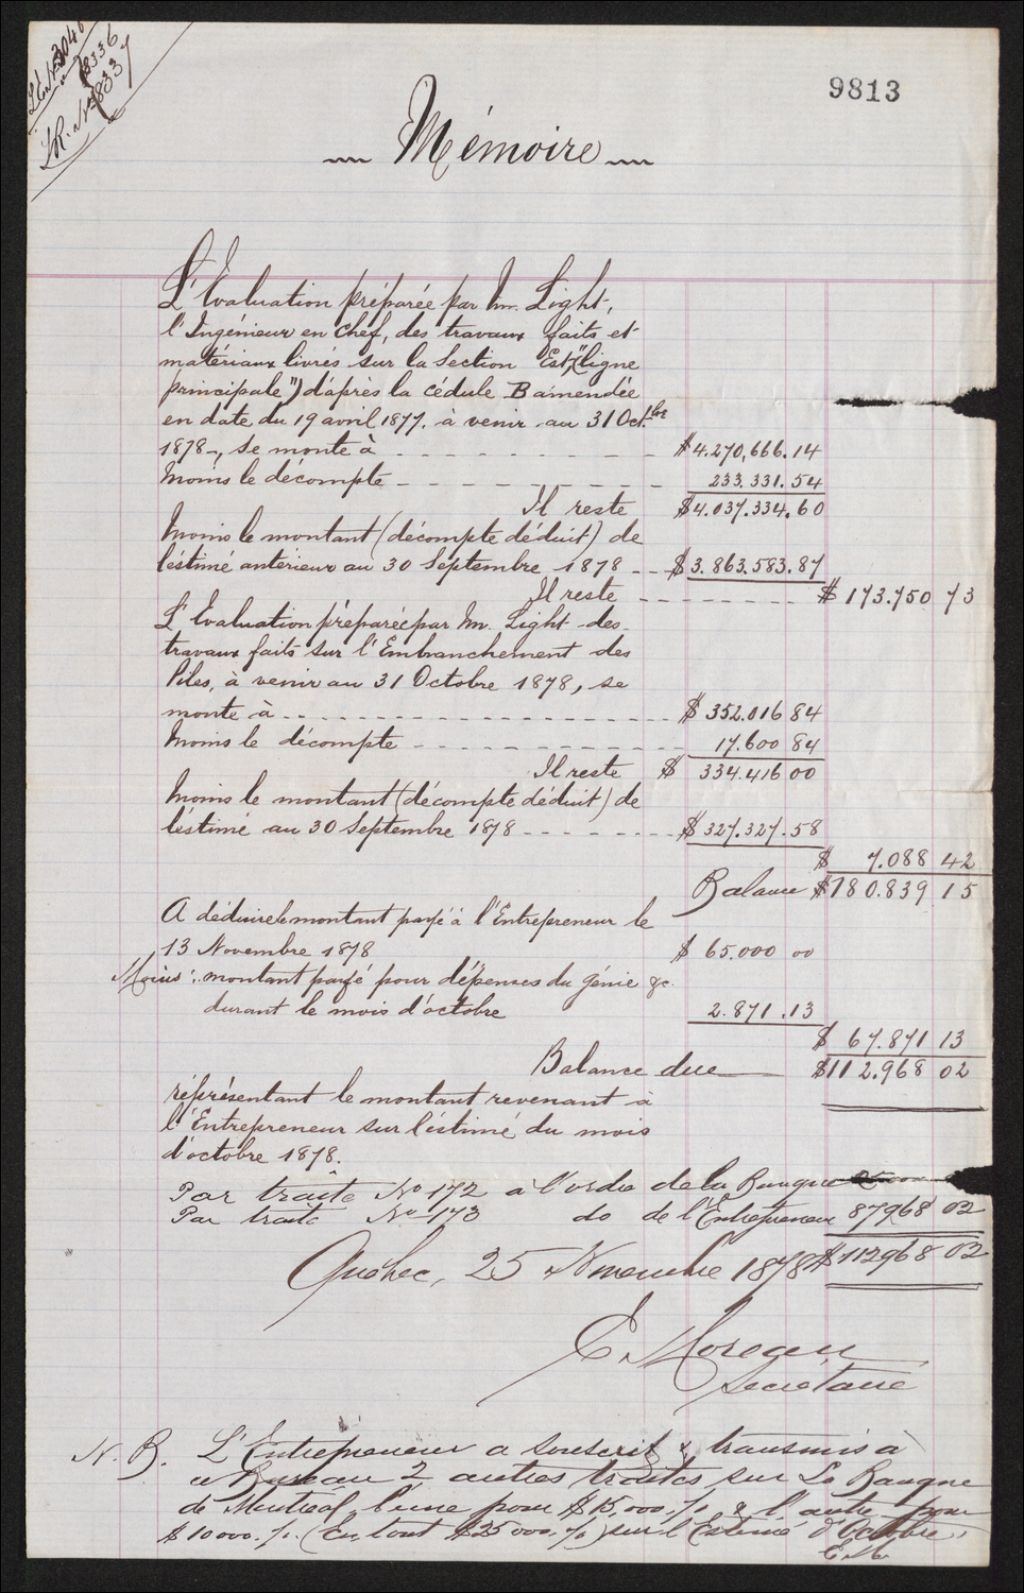 L.E. No 3040
8336
L.R. No 8337
9813
Mémoire
L'Evaluation préparée par Mr. Light,
l'Ingénieur en chef, des travaux faits et
matériaux livrés sur la Section Est, ("ligne
principale") d'après la cédule B amendée
en date du 19 avril 1877. à venir au 31 Octbre
1878-, se monte à $4.270,666.14
Moins le décompte 233.331.54
Il reste $4.037.334.60
Moins le montant (décompte déduit) de
l'éstimé antérieur au 30 Septembre 1878 $3.863.583.87
Il reste $173.750 73
L'Evaluation préparée par Mr. Light des
travaux faits sur l'Embranchement des
Piles, à venir au 31 Octobre 1878, se
monte à $352.016 84
Moins le décompte 17.600 84
Il reste $ 334.416 00
Moins le montant (décompte déduit) de
l'éstimé au 30 Septembre 1878 $327.327.58
$ 7.088 42
Balance $180.839 15
A déduire le montant payé à l'Entrepreneur le
13 Novembre 1878 $ 65.000 00
Moins: montant payé pour dépenses du génie &c.
durant le mois d'octobre 2.871.13
$ 67.871 13
Balance due $112.968 02
réprésentant le montant revenant à
l'Entrepreneur sur l'éstimé du mois
d'octobre 1878.
Par traite No 172 à l'ordre de la Banque
Par traite No 173 do de l'Entrepreneur 87968 02
$112968 02
Québec, 25 Novembre 1878
E. Moreau
Secrétaire
N.B. L'Entrepreneur a souscrit & transmis à
ce Bureau 2 autres traites sur La Banque
de Montréal, l'une pour $15,000./. & l'autre pour
$10000./. (En tout $25000./.) sur l'Estimé d'Octobre.
E.M.